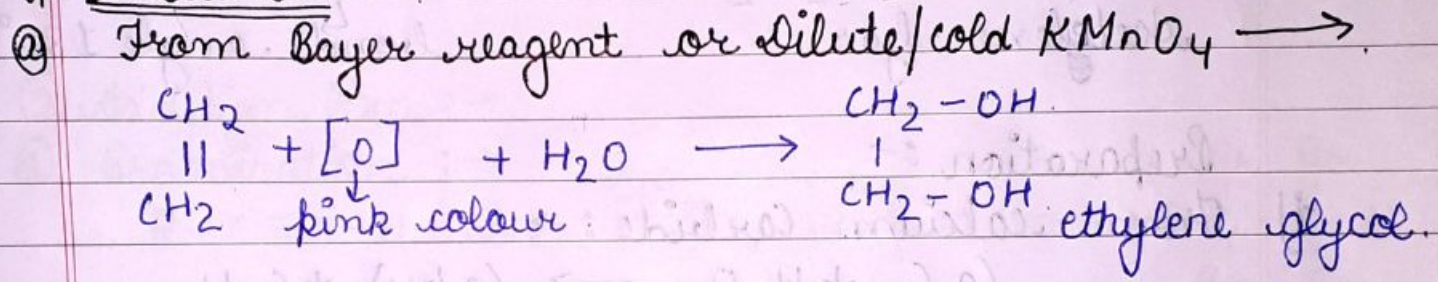 @ From Bayer reagent or Dilute/cold KMnO4 ⟶.
CH2 CH2-OH.
|| + [O] + H2O ⟶ |
↓
CH2 pink colour CH2-OH. ethylene glycol.